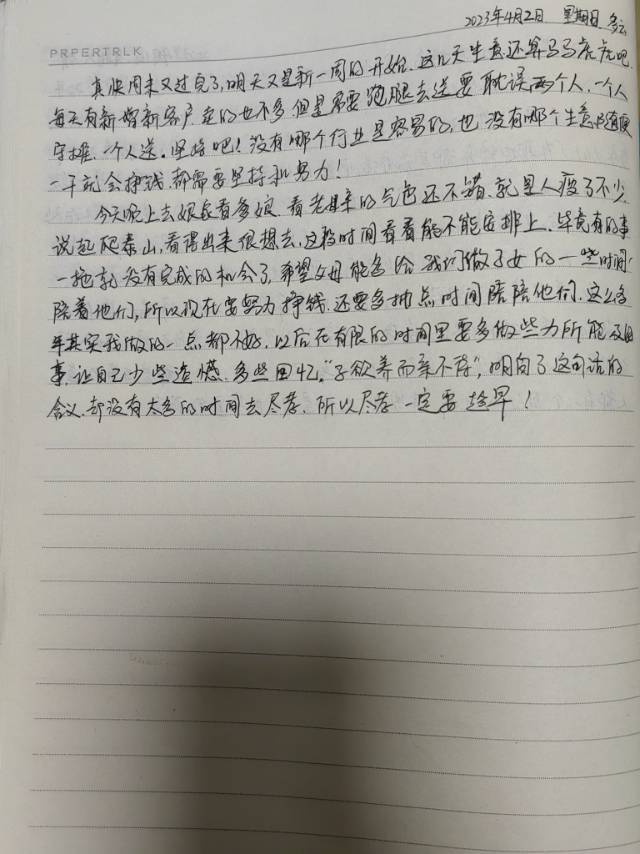 2023年4月2日 星期日 多云
PRPERTRLK
真快周末又过完了,明天又是新一周的开始.这几天生意还算马马虎虎吧
每天有新增新客户定的也不多但是需要跑腿去送要耽误两个人,一个人
守摊,一个人送.坚持吧!没有哪个行业是容易的,也没有哪个生意随便
一干就会挣钱,都需要坚持和努力!
今天晚上去娘家看爹娘,看老母亲的气色还不错,就是人瘦了不少.
说起爬泰山,看得出来很想去,这段时间看看能不能安排上.毕竟有的事
一拖就没有完成的机会了,希望父母能多给我们做子女的一些时间,
陪着他们,所以现在要努力挣钱.还要多抽点时间陪陪他们.这么多
年其实我做的一点都不好.以后在有限的时间里要多做些力所能及的
事.让自己少些遗憾.多些回忆."子欲养而亲不待",明白了这句话的
含义.却没有太多的时间去尽孝.所以尽孝一定要趁早!